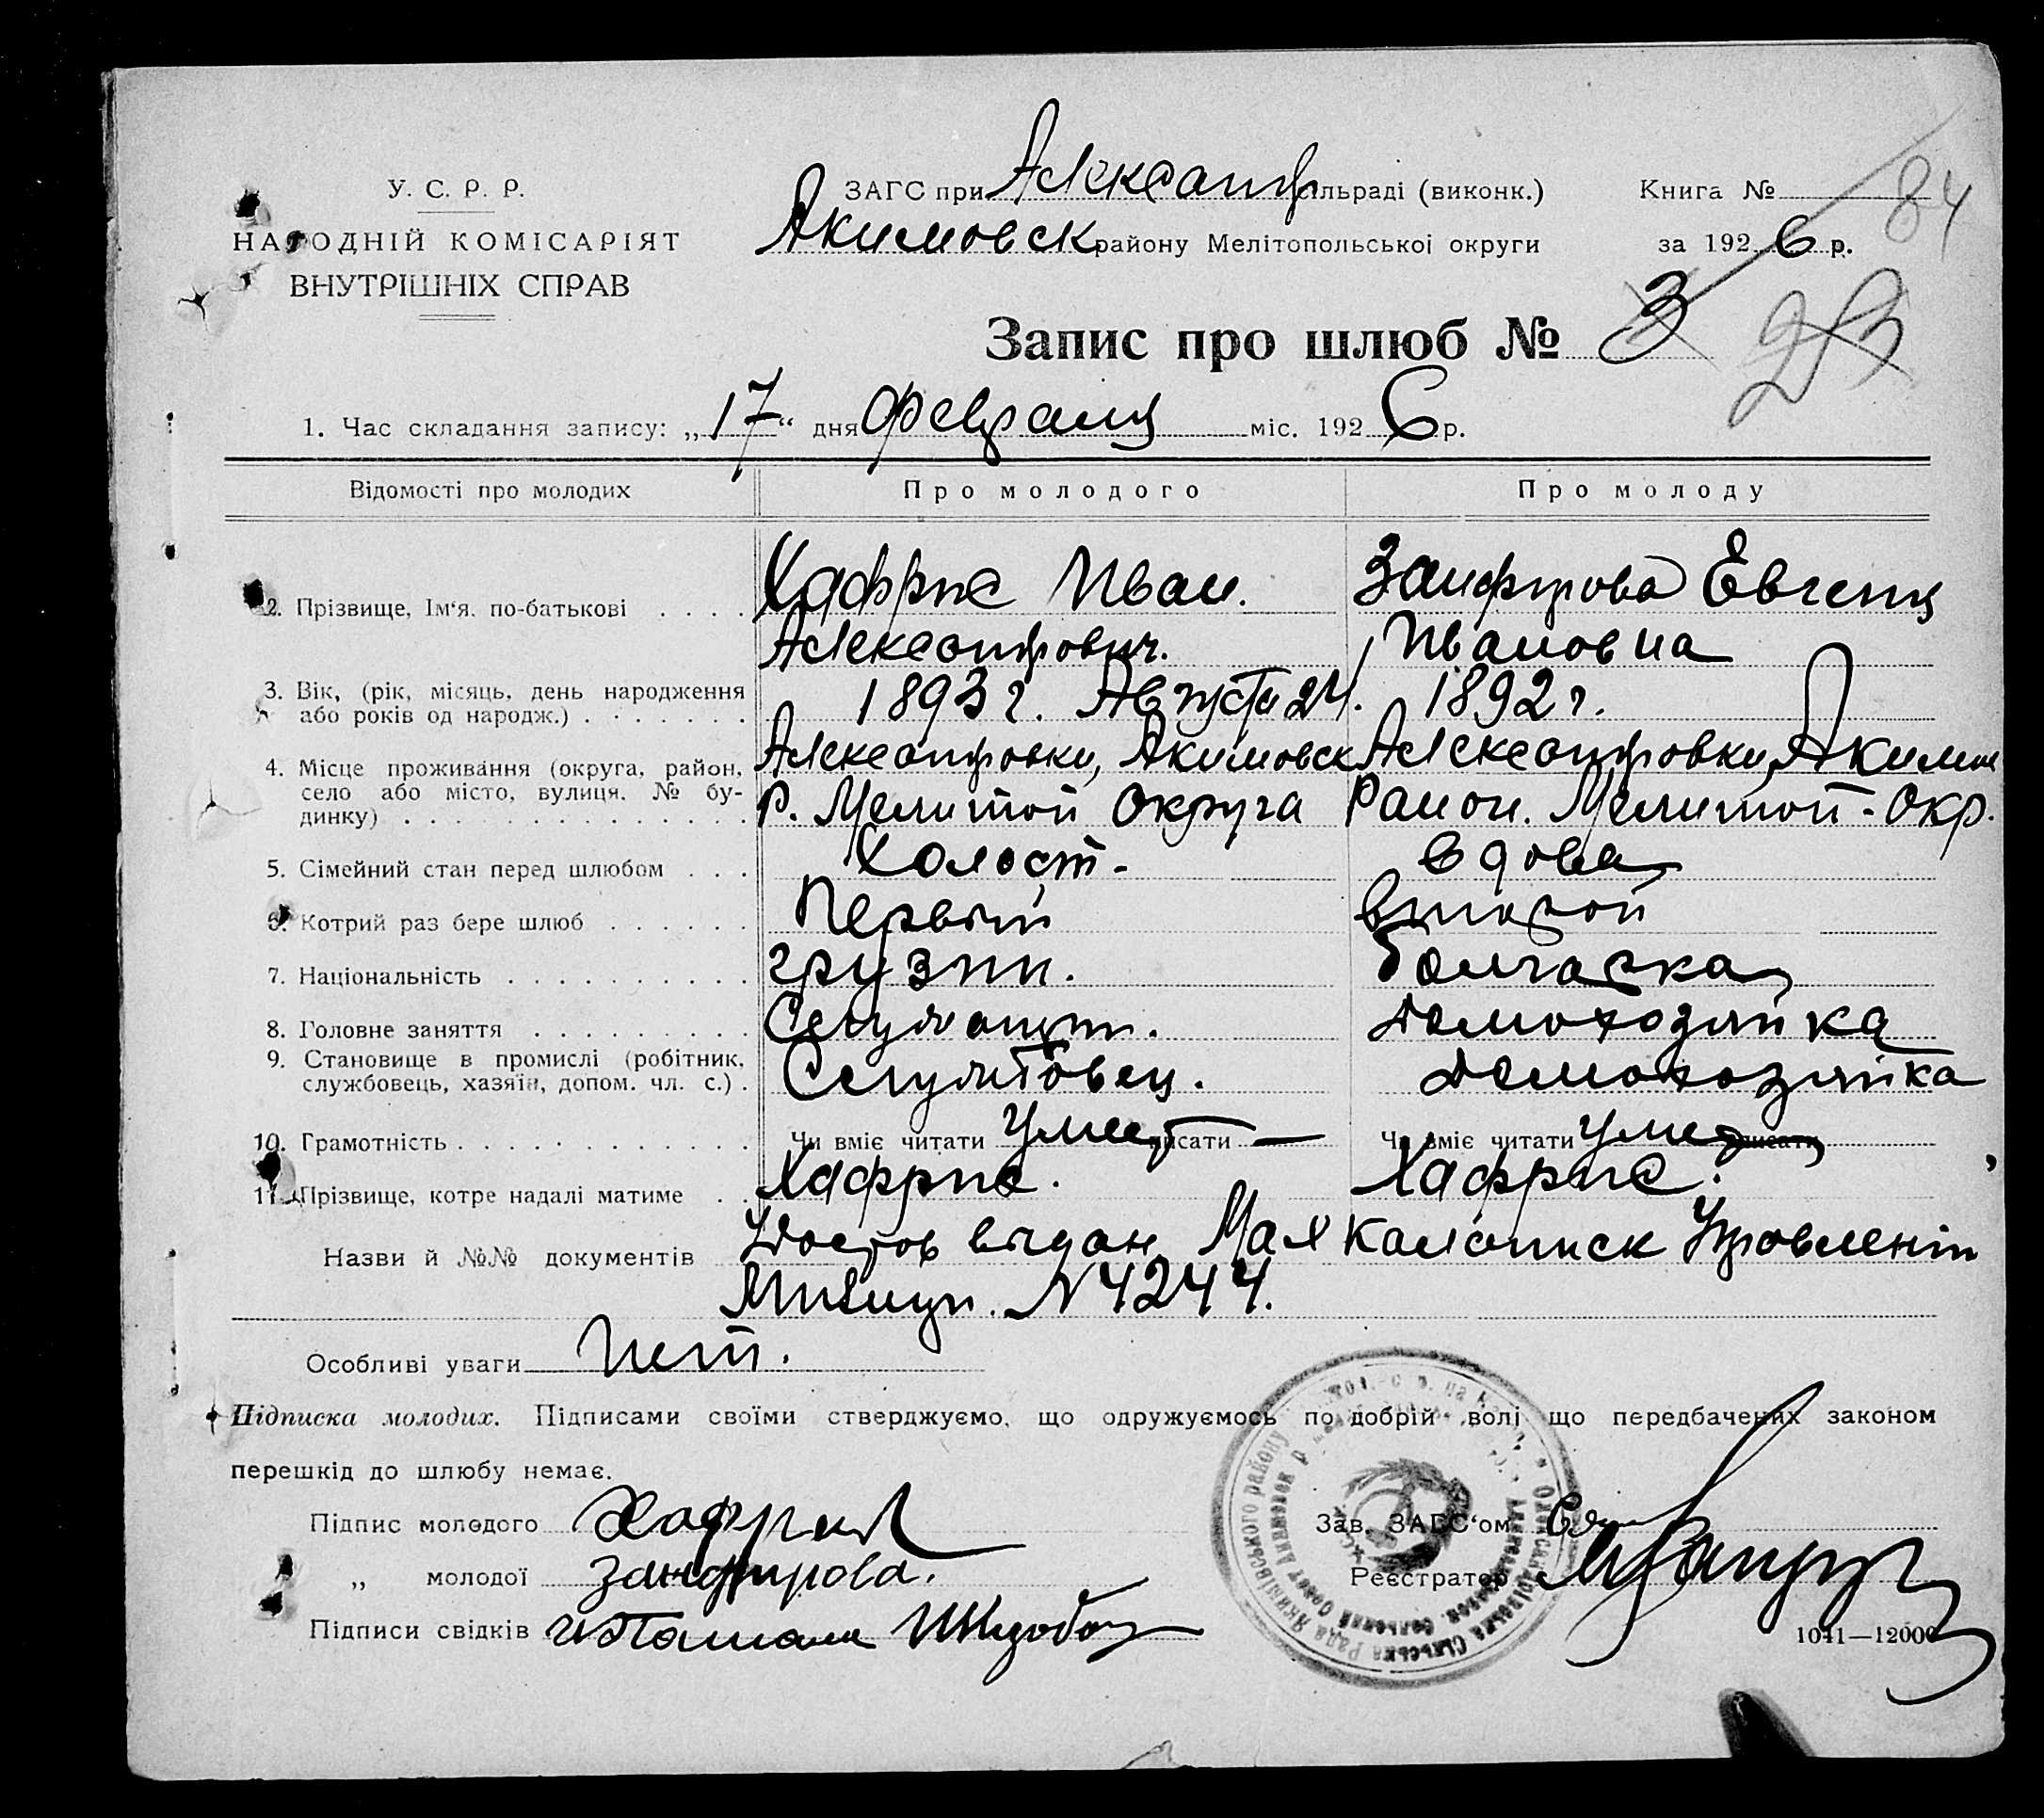 У. С. Р. Р.
НАРОДНІЙ КОМІСАРІЯТ
ВНУТРІШНІХ СПРАВ
ЗАГС при Александр сільраді (виконк.)
Акимовск району Мелітопольської округи
Книга №
84
за 1926 р.
Запис про шлюб № 3
23
1. Час складання запису: „17“ дня февраля міс. 1926 р.
Відомості про молодих Про молодого Про молоду
2. Прізвище, Ім'я, по-батькові . . . . Хафриѐ Иван. Занфирова Евгения
Александрович. Ивановна
3. Вік, (рік, місяць, день народження
або років од народж.) . . . . . . . 1893 г. Августа 24. 1892 г.
4. Місце проживання (округа, район,
село або місто, вулиця, № бу-
динку) . . . . . . . . . . . . . .
Александровки, Акимовск Александровки, Акимов
Р. Мелитоп Округа Район. Мелитоп - Окр.
5. Сімейний стан перед шлюбом . . . Холост. вдова
6. Котрий раз бере шлюб . . . . . . Первый второй
7. Національність . . . . . . . . . . грузин. болгарка
8. Головне заняття . . . . . . . . . домохозяйка
9. Становище в промислі (робітник,
службовець, хазяїн, допом. чл. с.) . домохозяйка
10. Грамотність . . . . . . . . . . . . Чи вміє читати Умеет писати — Чи вміє читати Умеет писати
11. Прізвище, котре надалі матиме . . Хафрие. Хафрие.
Назви й №№ документів Удостов выдан. Управлением
Милиции. N 4244.
Особливі уваги Нет.
Підписка молодих. Підписами своїми стверджуємо, що одружуємось по добрій волі що передбачених законом
перешкід до шлюбу немає.
Підпис молодого
„ молодої Занфирова.
Підписи свідків
Зав. ЗАГС'ом
Реєстратор
1041—12000